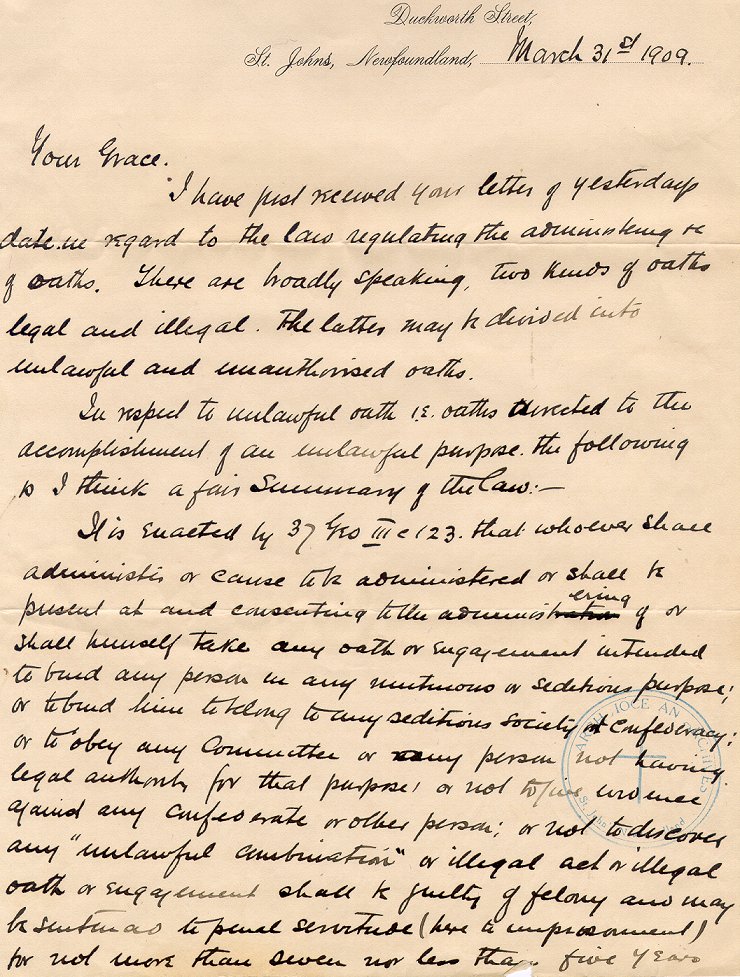 Duckworth Street,
St. John's, Newfoundland, March 31st 1909.
Your Grace.
I have just received your letter of yesterdays
date in regard to the law regulating the administering &c
of oaths. There are broadly speaking, two kinds of oaths
legal and illegal. The latter may be divided into
unlawful and unauthorised oaths.
In respect to unlawful oath i.e. oaths directed to the
accomplishment of an unlawful purpose. the following
is I think a fair Summary of the law:—
It is enacted by 37 Geo III c 123. that whoever shall
administer or cause to be administered or shall be
present at and consenting to the administering of or
shall himself take any oath or engagement intended
to bind any person in any mutinous or seditious purpose;
or to bind him to belong to any seditious society or confederacy;
or to obey any Committee or any person not having
legal authority for that purpose; or not to give evidence
against any confederate or other person; or not to discover
any "unlawful combination" or illegal act or illegal
oath or engagement shall be guilty of felony and may
be sentenced to penal servitude (here to imprisonment)
for not more than seven nor less than five years
ARCHDIOCESAN ARCHIVES
St. John's